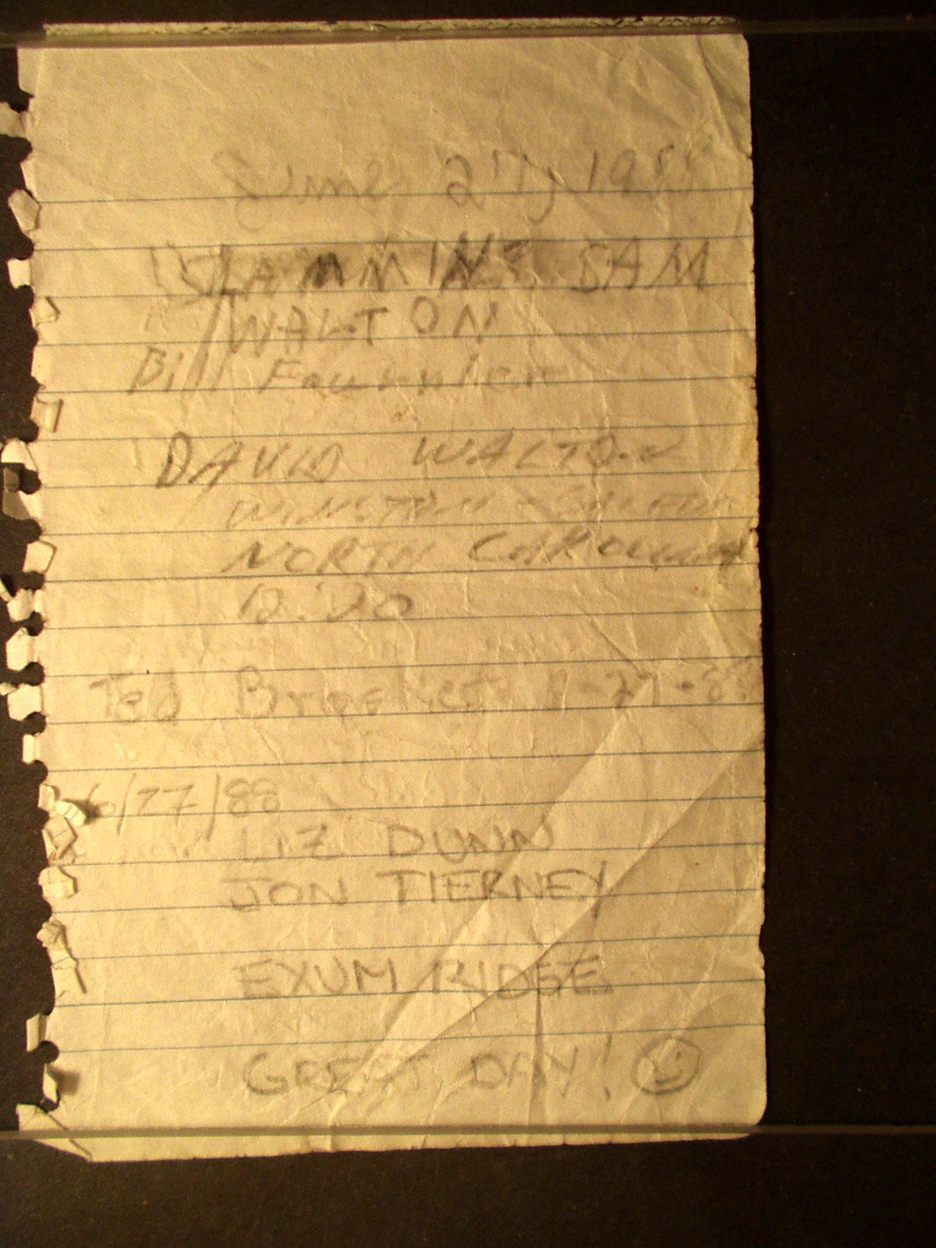 June 27, 1988
SLAMMING SAM
WALTON
Bill Fournier
DAVID WALTON
WINSTON-SALEM
NORTH CAROLINA
12:20
Ted
6/27/88
LIZ DUNN
JON TIERNEY
EXUM RIDGE
GREAT DAY!